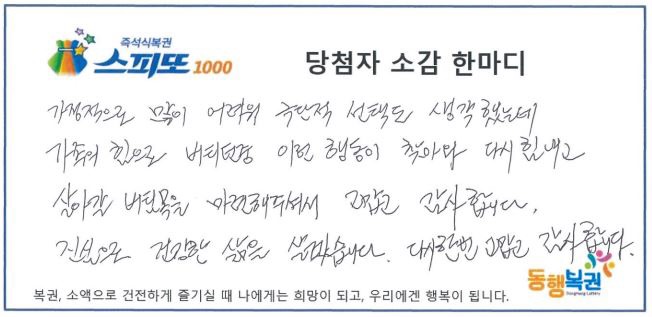 즉석식복권
스피또 1000
당첨자 소감 한마디
가정적으로 많이 어려워 극단적 선택도 생각했는데
가족의 힘으로 버티던중 이런 행동이 찾아와 다시 힘내고
살아갈 버팀목을 마련해주셔서 고맙고 감사합니다.
진심으로 건강한 삶을 살겠습니다. 다시한번 고맙고 감사합니다.
동행복권
DongHaeng Lottery
복권, 소액으로 건전하게 즐기실 때 나에게는 희망이 되고, 우리에겐 행복이 됩니다.